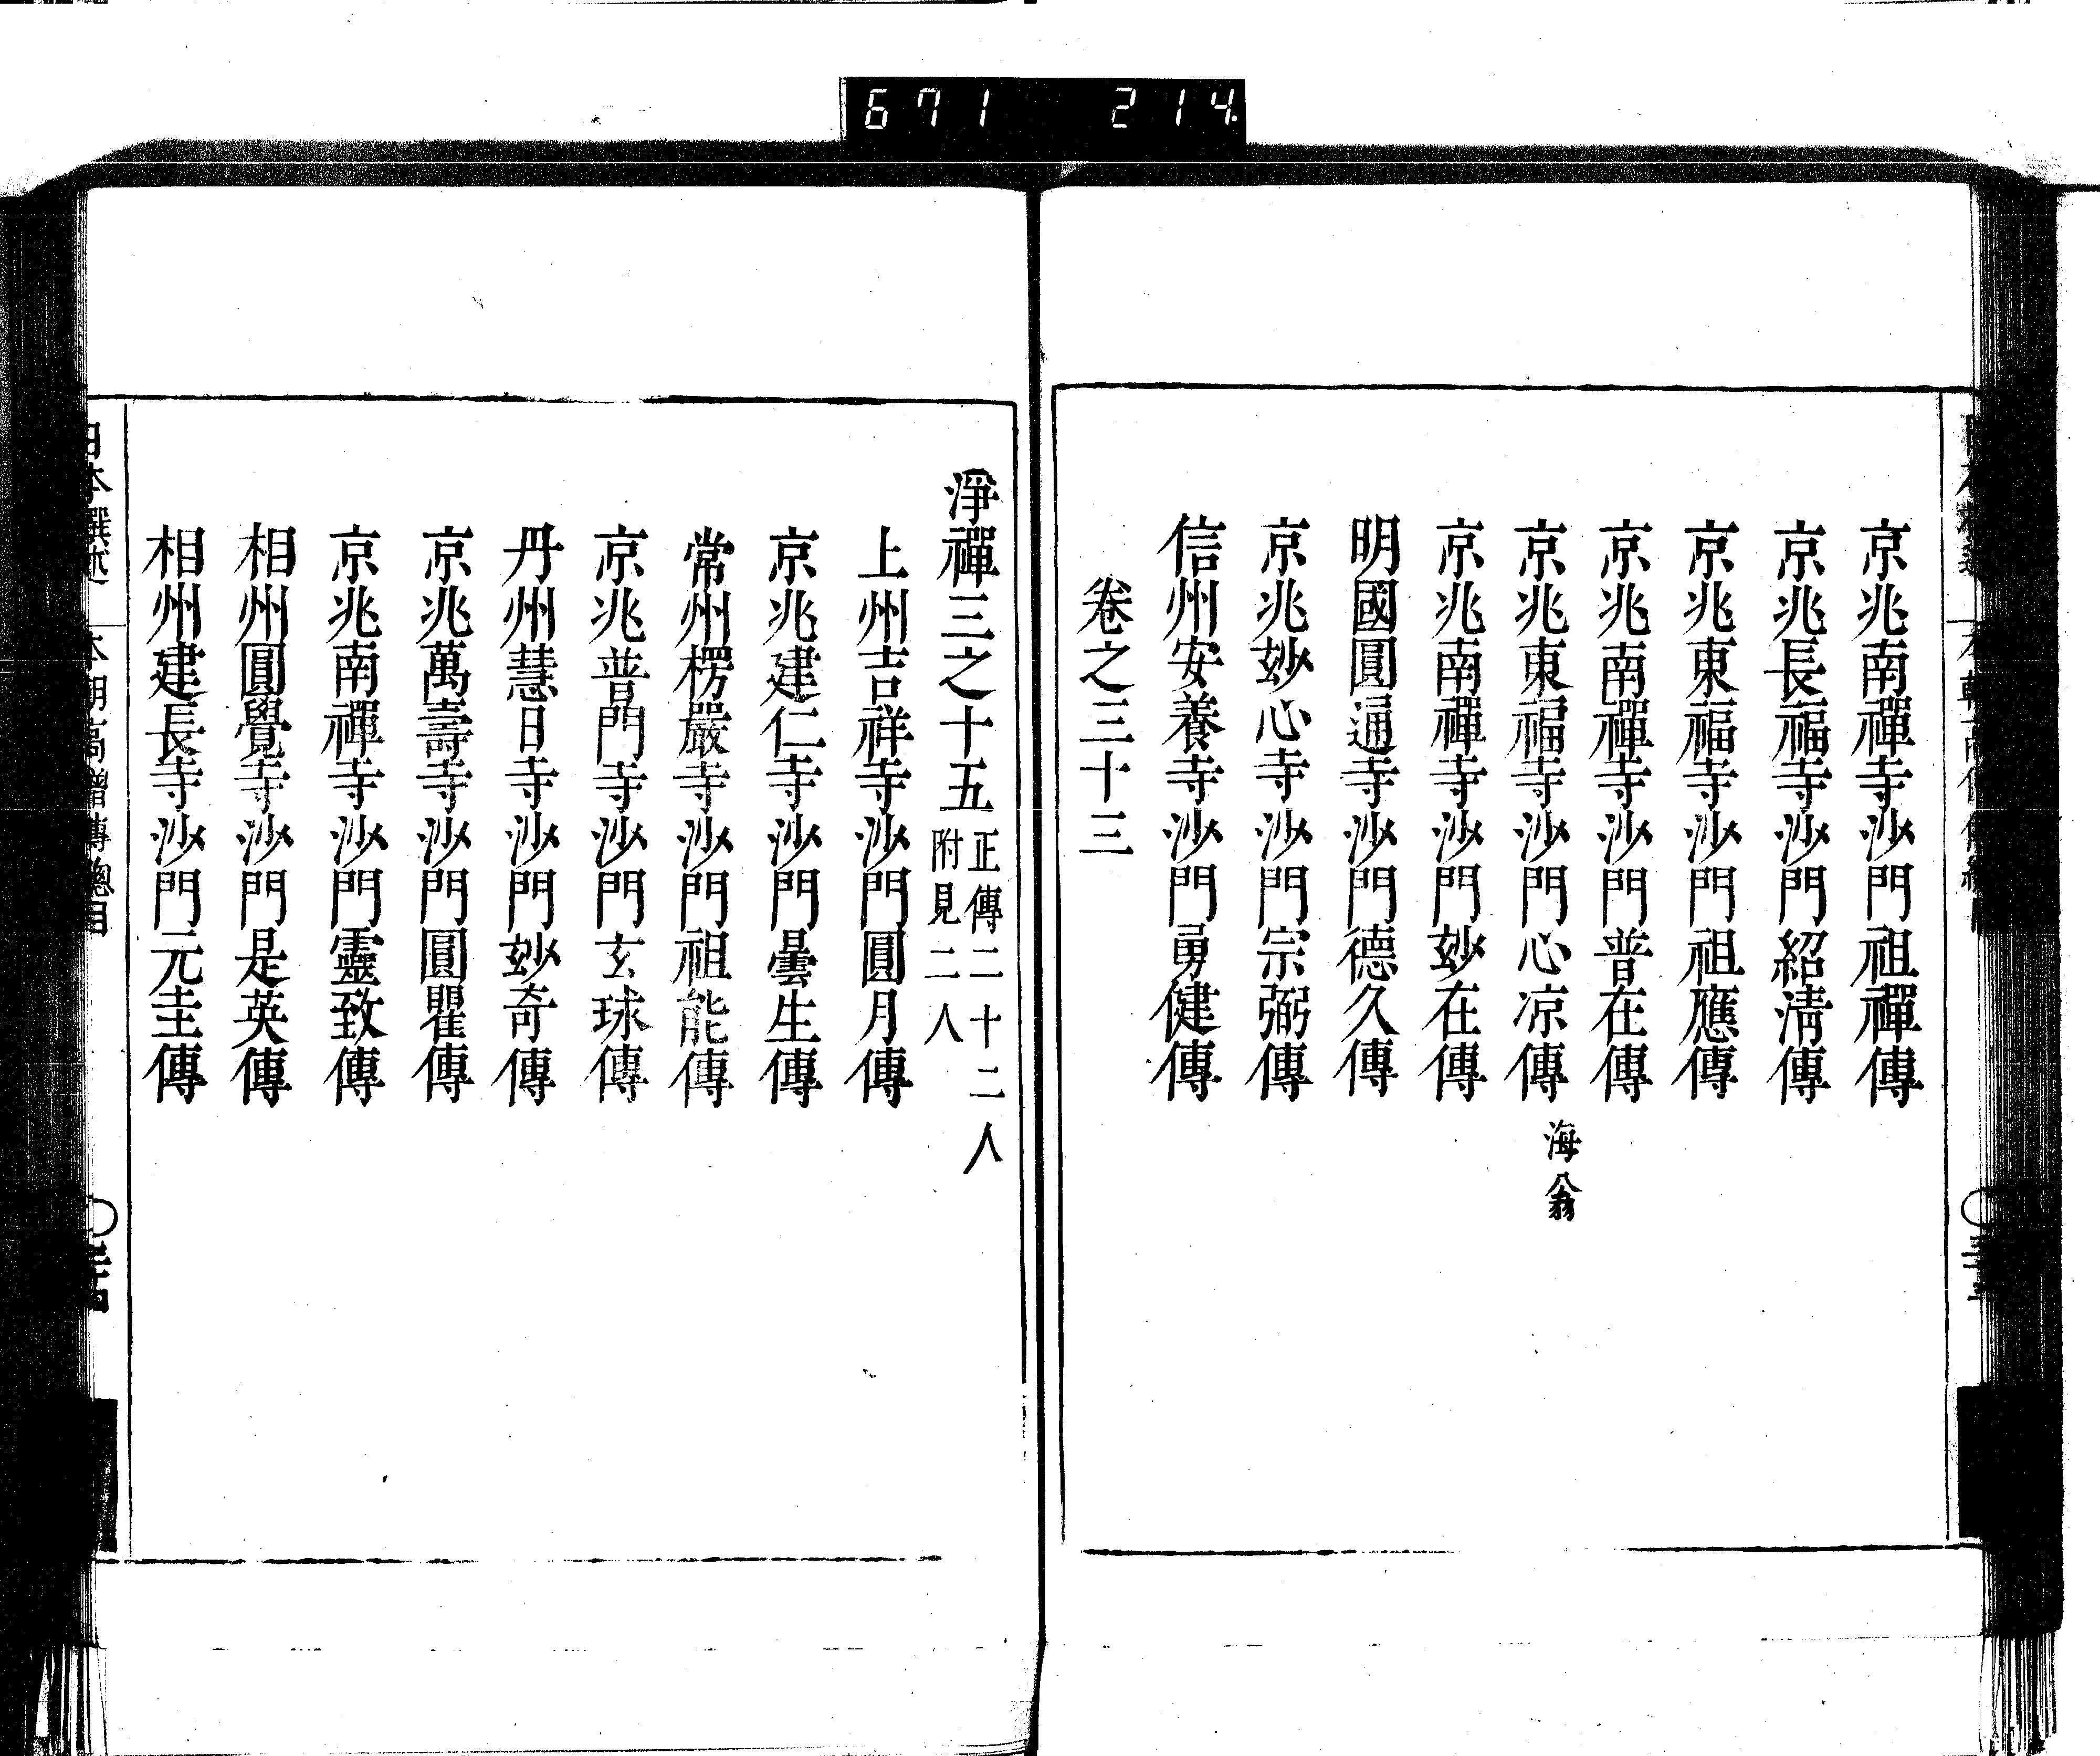 671 214
京兆南禪寺沙門祖禪傳
京兆長福寺沙門紹淸傳
京兆東福寺沙門祖應傳
京兆南禪寺沙門普在傳
京兆東福寺沙門心凉傳 海翁
京兆南禪寺沙門玅在傳
明國圓通寺沙門德久傳
京兆玅心寺沙門宗弼傳
信州安養寺沙門勇健傳
卷之三十三
淨禪三之十五 正傳二十二人
附見二人
上州吉祥寺沙門圓月傳
京兆建仁寺沙門曇生傳
常州楞嚴寺沙門祖能傳
京兆普門寺沙門玄球傳
丹州慧日寺沙門玅奇傳
京兆萬壽寺沙門圓瞿傳
京兆南禪寺沙門靈致傳
相州圓覺寺沙門是英傳
相州建長寺沙門元圭傳
日本撰述 本朝高僧傳總目